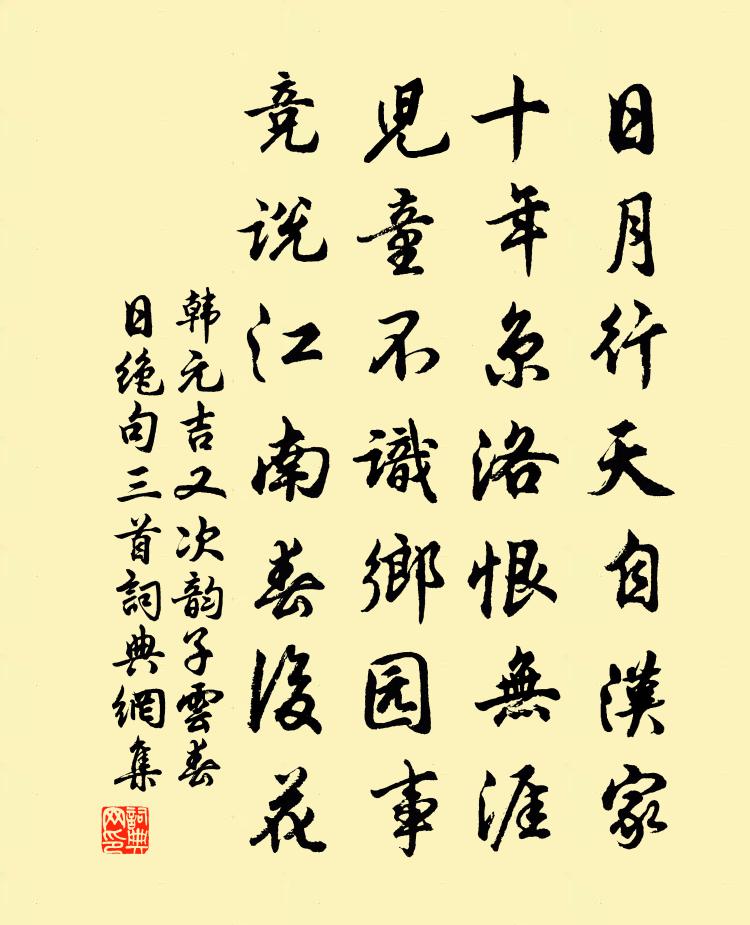 日月行天自漢家
十年京洛恨無涯
兒童不識鄉园事
竞说江南春後花
韩元吉又次韵子雲春
日绝句三首詞典網集
詞典网印